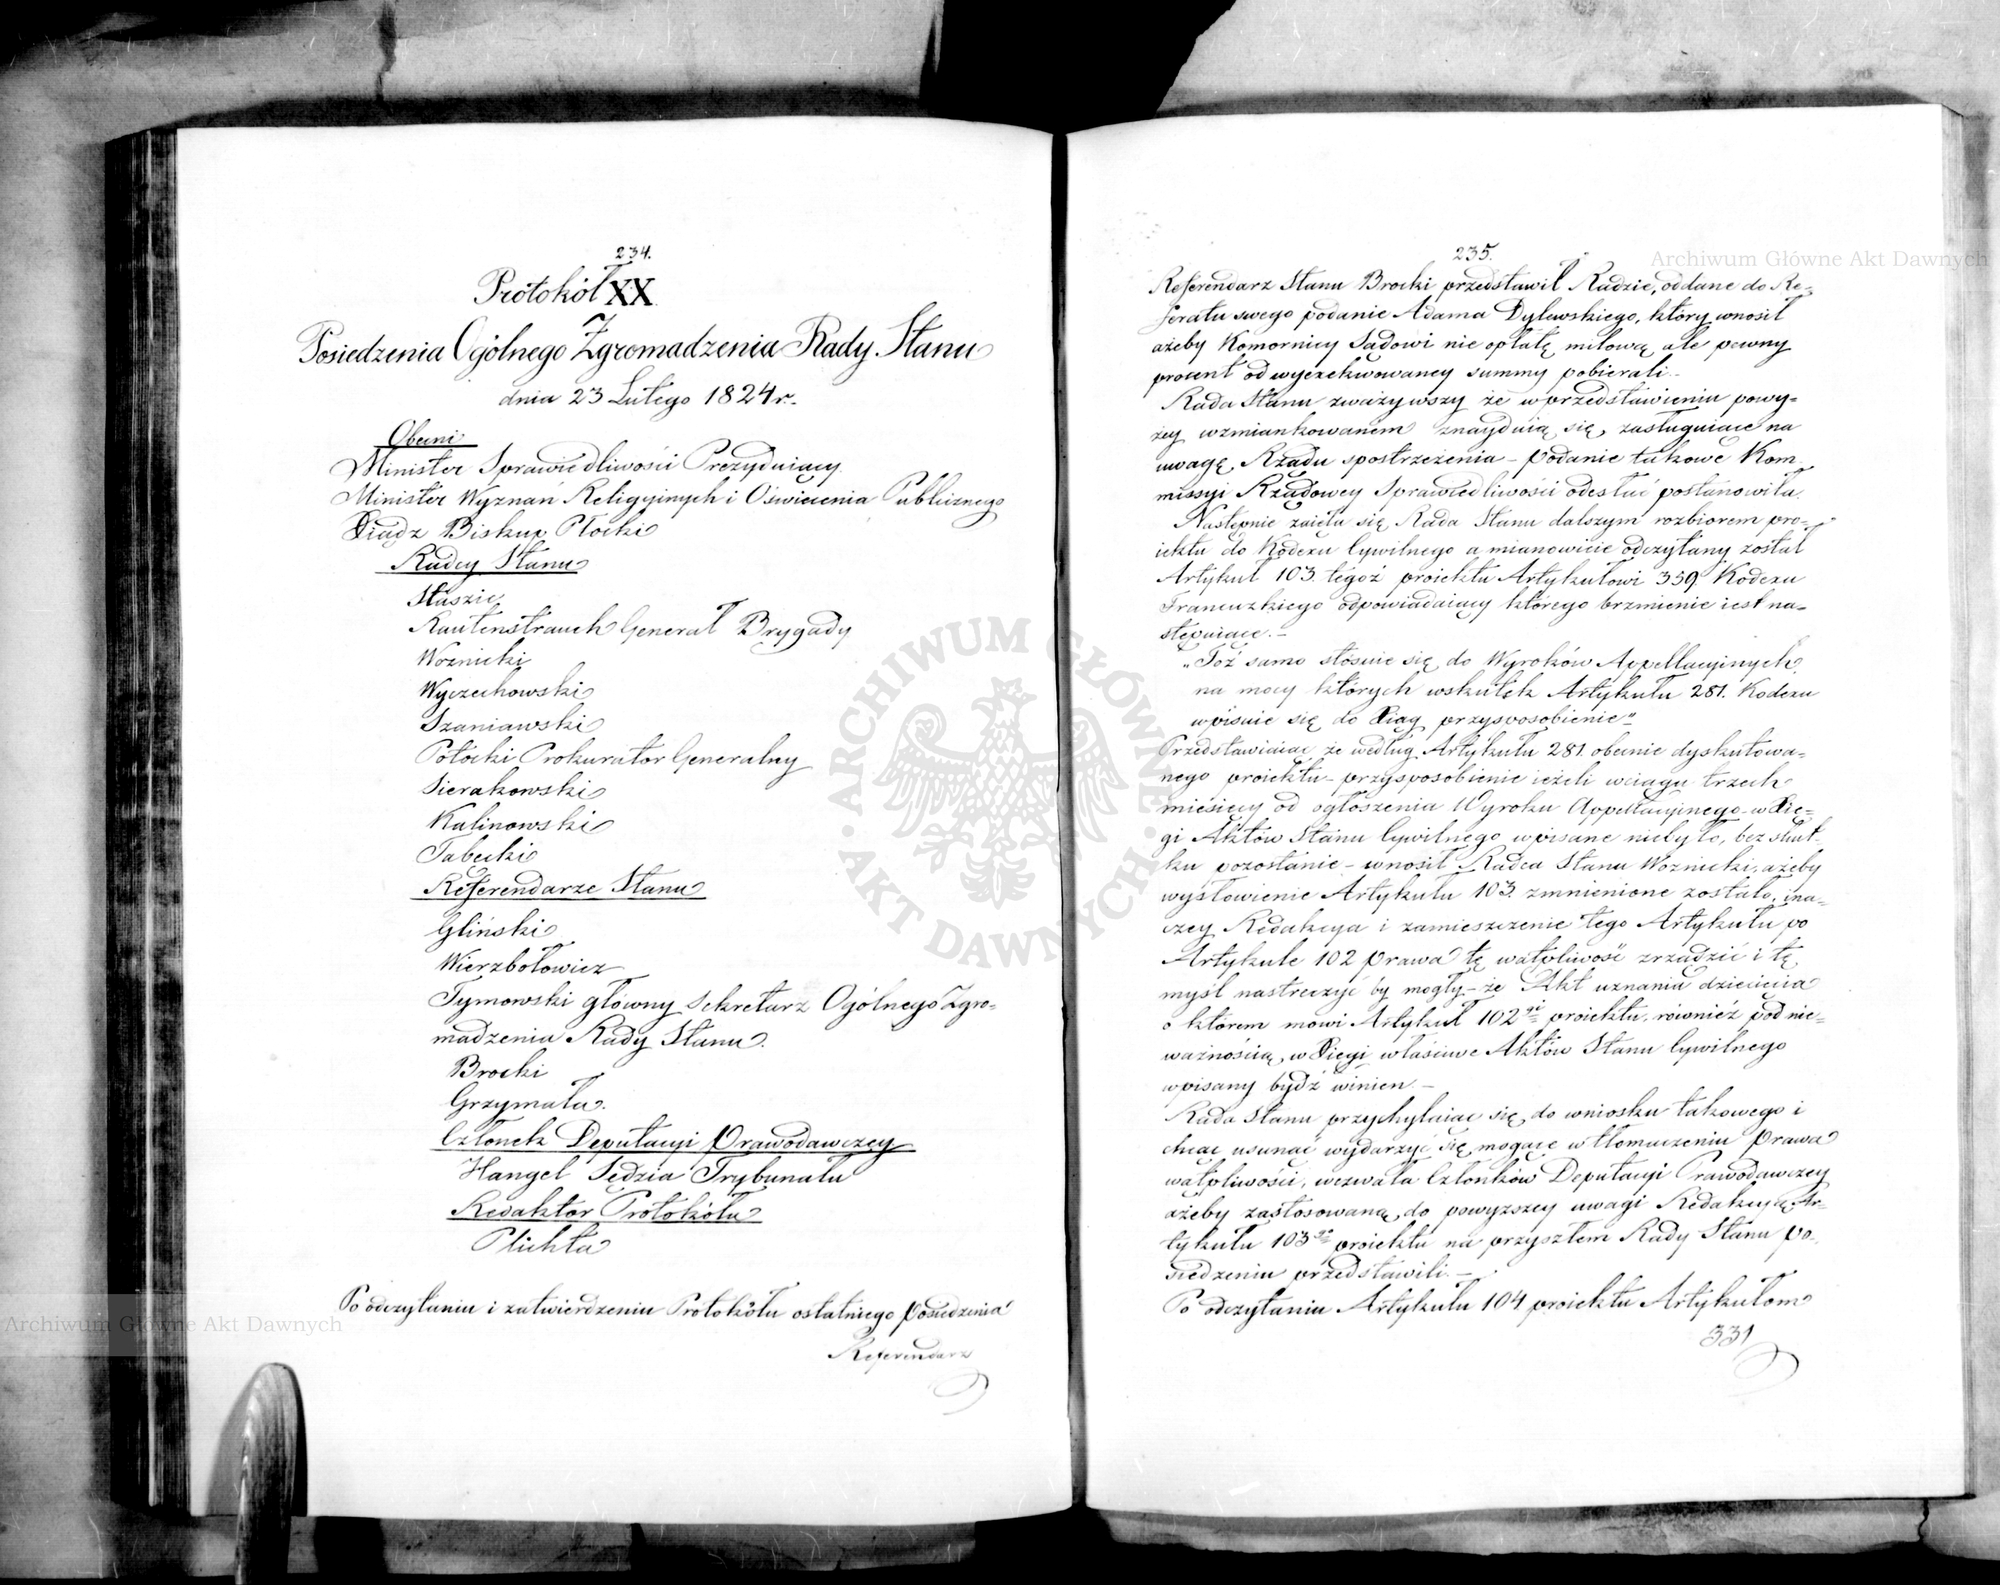 234.
Protokół XX
Posiedzenia Ogólnego Zgromadzenia Rady Stanu
dnia 23 Lutego 1824 r.
Obecni
Minister Sprawiedliwości Prezyduiący
Minister Wyznań Religyinych i Oświecenia Publicznego
Xiądz Biskup Płocki
Radcy Stanu
Staszic
Rautenstrauch Generał Brygady
Woznicki
Wyczechowski
Szaniawski
Potocki Prokurator Generalny
Sierakowski
Kalinowski
Tabęcki
Referendarze Stanu
Gliński
Wierzbołowicz
Tymowski główny Sekretarz Ogólnego Zgro-
madzenia Rady Stanu.
Brocki
Grzymała.
Członek Deputacyi Prawodawczey
Hangel Sędzia Trybunału
Redaktor Protokółu
Plichta
Po odczytaniu i zatwierdzeniu Protokółu ostatniego Posiedzenia
Referendarz
235.
Referendarz Stanu Brocki przedstawił Radzie, oddane do Re-
feratu swego podanie Adama Dylewskiego, który wnosił
ażeby Komornicy Sądowi nie opłatę milową ale pewny
procent od wyexekwowaney summy pobierali.-
Rada Stanu zważywszy że w przedstawieniu powy-
żey wzmiankowanem znayduią się, zasługuiące na
uwagę Rządu spostrzeżenia - podanie takowe Kom-
missyi Rządowey Sprawiedliwości odesłać postanowiła.
Następnie zaięła się Rada Stanu dalszym rozbiorem pro-
iektu do Kodexu Cywilnego a mianowicie odczytany został
Artykuł 103. tegoż proiektu Artykułowi 359. Kodexu
Francuzkiego odpowiadaiący którego brzmienie iest na-
stępuiące.-
„Toż samo stósuie się do Wyroków Appellacyinych
na mocy których wskutek Artykułu 281. Kodexu
wpisuie się do Xiąg przysposobienie"
Przedstawiaiąc że według Artykułu 281. obecnie dyskutowa-
nego proiektu - przysposobienie ieżeli w ciągu trzech
miesięcy od ogłoszenia Wyroku Appellacyinego - w Xię-
gi Aktów Stanu Cywilnego wpisane nieby ło, bez skut-
ku pozostanie - wnosił Radca Stanu Woznicki, ażeby
wysłowienie Artykułu 103. zmnienione zostało, ina-
czey Redakcya i zamieszczenie tego Artykułu po
Artykule 102 prawa tę wątpliwość zrządzić i tę
myśl nastręczyć by mogły - że Akt uznania dziecięcia
o którem mowi Artykuł 102go proiektu, rownież pod nie-
ważnością, w Xięgi właściwe Aktów Stanu Cywilnego
wpisany bydź winien -
Rada Stanu przychylaiąc się do wniosku takowego i
chcąc usunąć wydarzyć się mogące w tłomaczeniu Prawa
wątpliwości, wezwała Członków Deputacyi Prawodawczey
ażeby zastosowaną do powyższey uwagi Redakcyą Ar-
tykułu 103go proiektu na przyszłem Rady Stanu po-
siedzeniu przedstawili. -
Po odczytaniu Artykułu 104 proiektu Artykułom
331
Archiwum Główne Akt Dawnych
Archiwum Główne Akt Dawnych
ARCHIWUM GŁÓWNE
AKT DAWNYCH